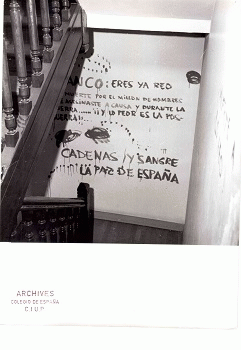 NCO: ERES YA RED
MUERTE POR EL MILLON DE HOMBRES
CAUSA Y DURANTE LA
ERRA Y LO PEOR ES LA POS
GERRA
CADENAS Y SANGRE
LA PAZ DE ESPAÑA
ARCHIVES
COLEGIO DE ESPAÑA
C.I.U.P.